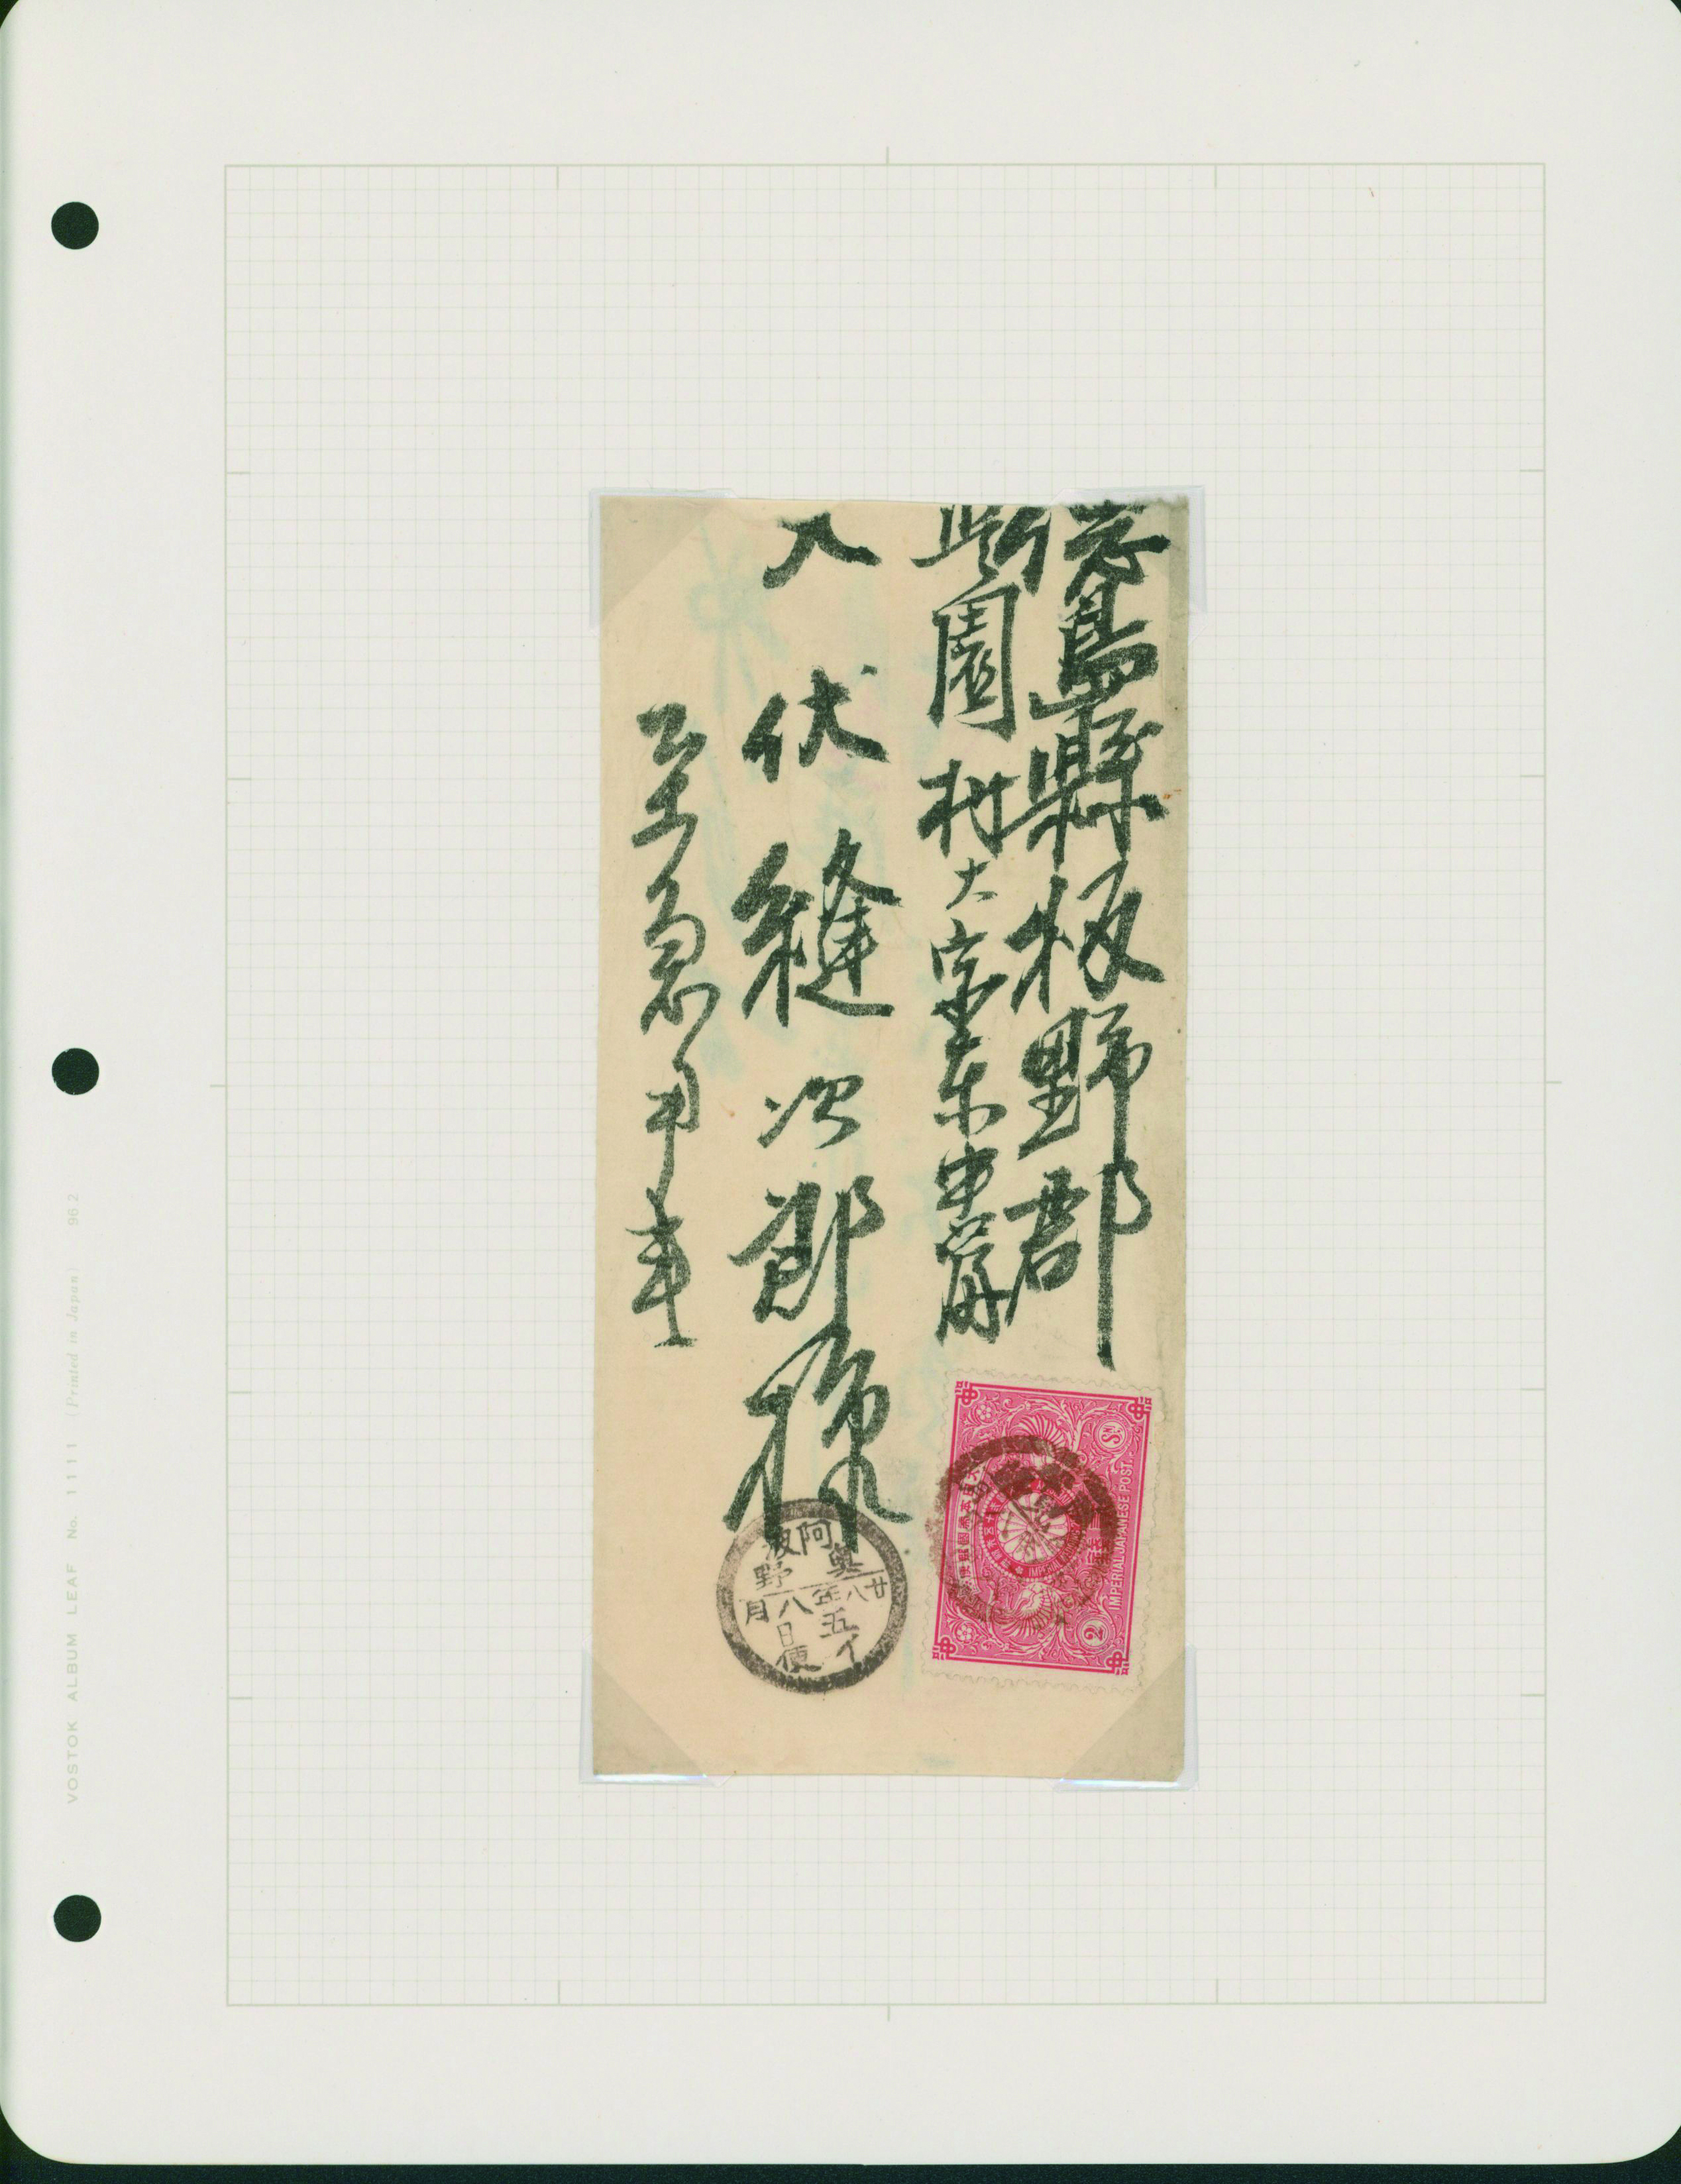 徳島縣板野郡
新園村大字東中富
犬伏縫次郎様
至急用事
阿波
奥野
廿八年八月
五日
イ便
IMPERIAL JAPANESE POST.
2
SN
VOSTOK ALBUM LEAF No. 1111 (Printed in Japan) 962